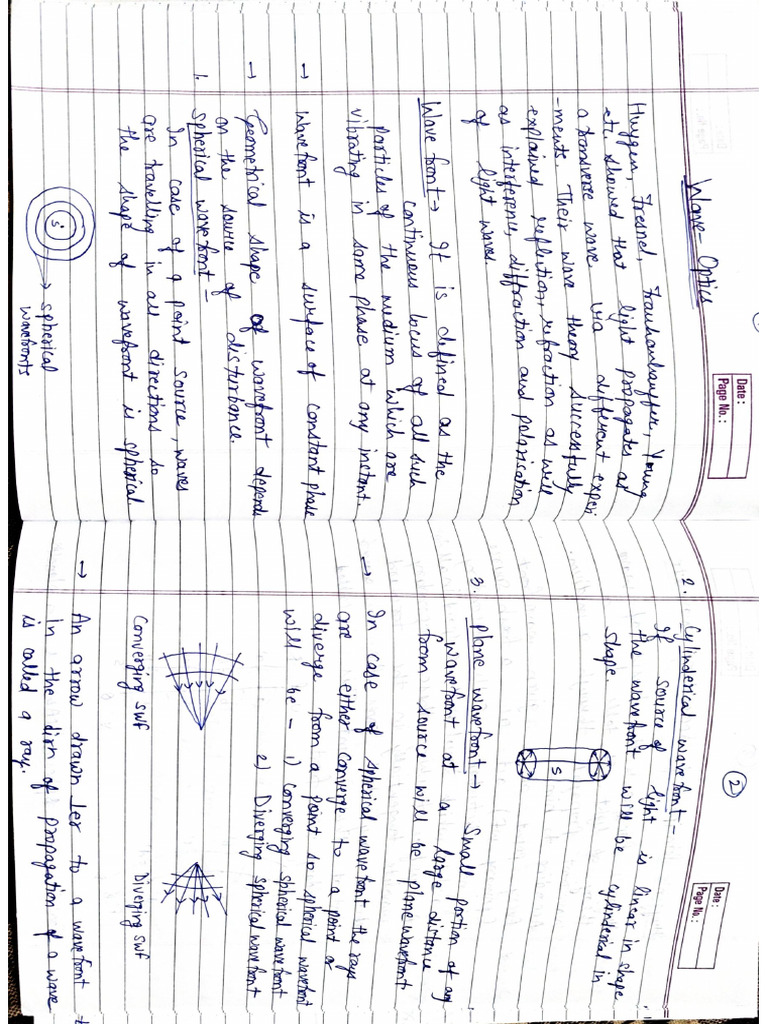 Date :
Page No. :
Wave- Optics
Huygen, Fresnel, Fraunhauffer, Young
etc. showed that light propagates as
a transverse wave via different experi
-ments. Their wave theory successfully
explained reflection, refraction as well
as interference, diffraction and polarisation
of light waves.
Wave front → It is defined as the
continuous locus of all such
particles of the medium which are
vibrating in same phase at any instant.
→ Wavefront is a surface of constant phase
→ Geometrical shape of wavefront depends
on the source of disturbance.
1. Spherical wavefront -
In case of a point source, waves
are travelling in all directions so
the shape of wavefront is spherical
S
→ spherical
wavefronts
2
Date :
Page No. :
2. Cylinderical wavefront -
If source of light is linear in shape
the wavefront will be cylinderical in
shape.
S
3. Plane wavefront → Small portion of any
wavefront at a large distance
from source will be plane wavefront
→ In case of spherical wavefront the rays
are either converge to a point or
diverge from a point so spherical wavefront
will be - 1) Converging spherical wavefront
2) Diverging spherical wavefront
Converging swf
Diverging swf
→ An arrow drawn ler to a wavefront
in the dirn of propagation of a wave
is called a ray.